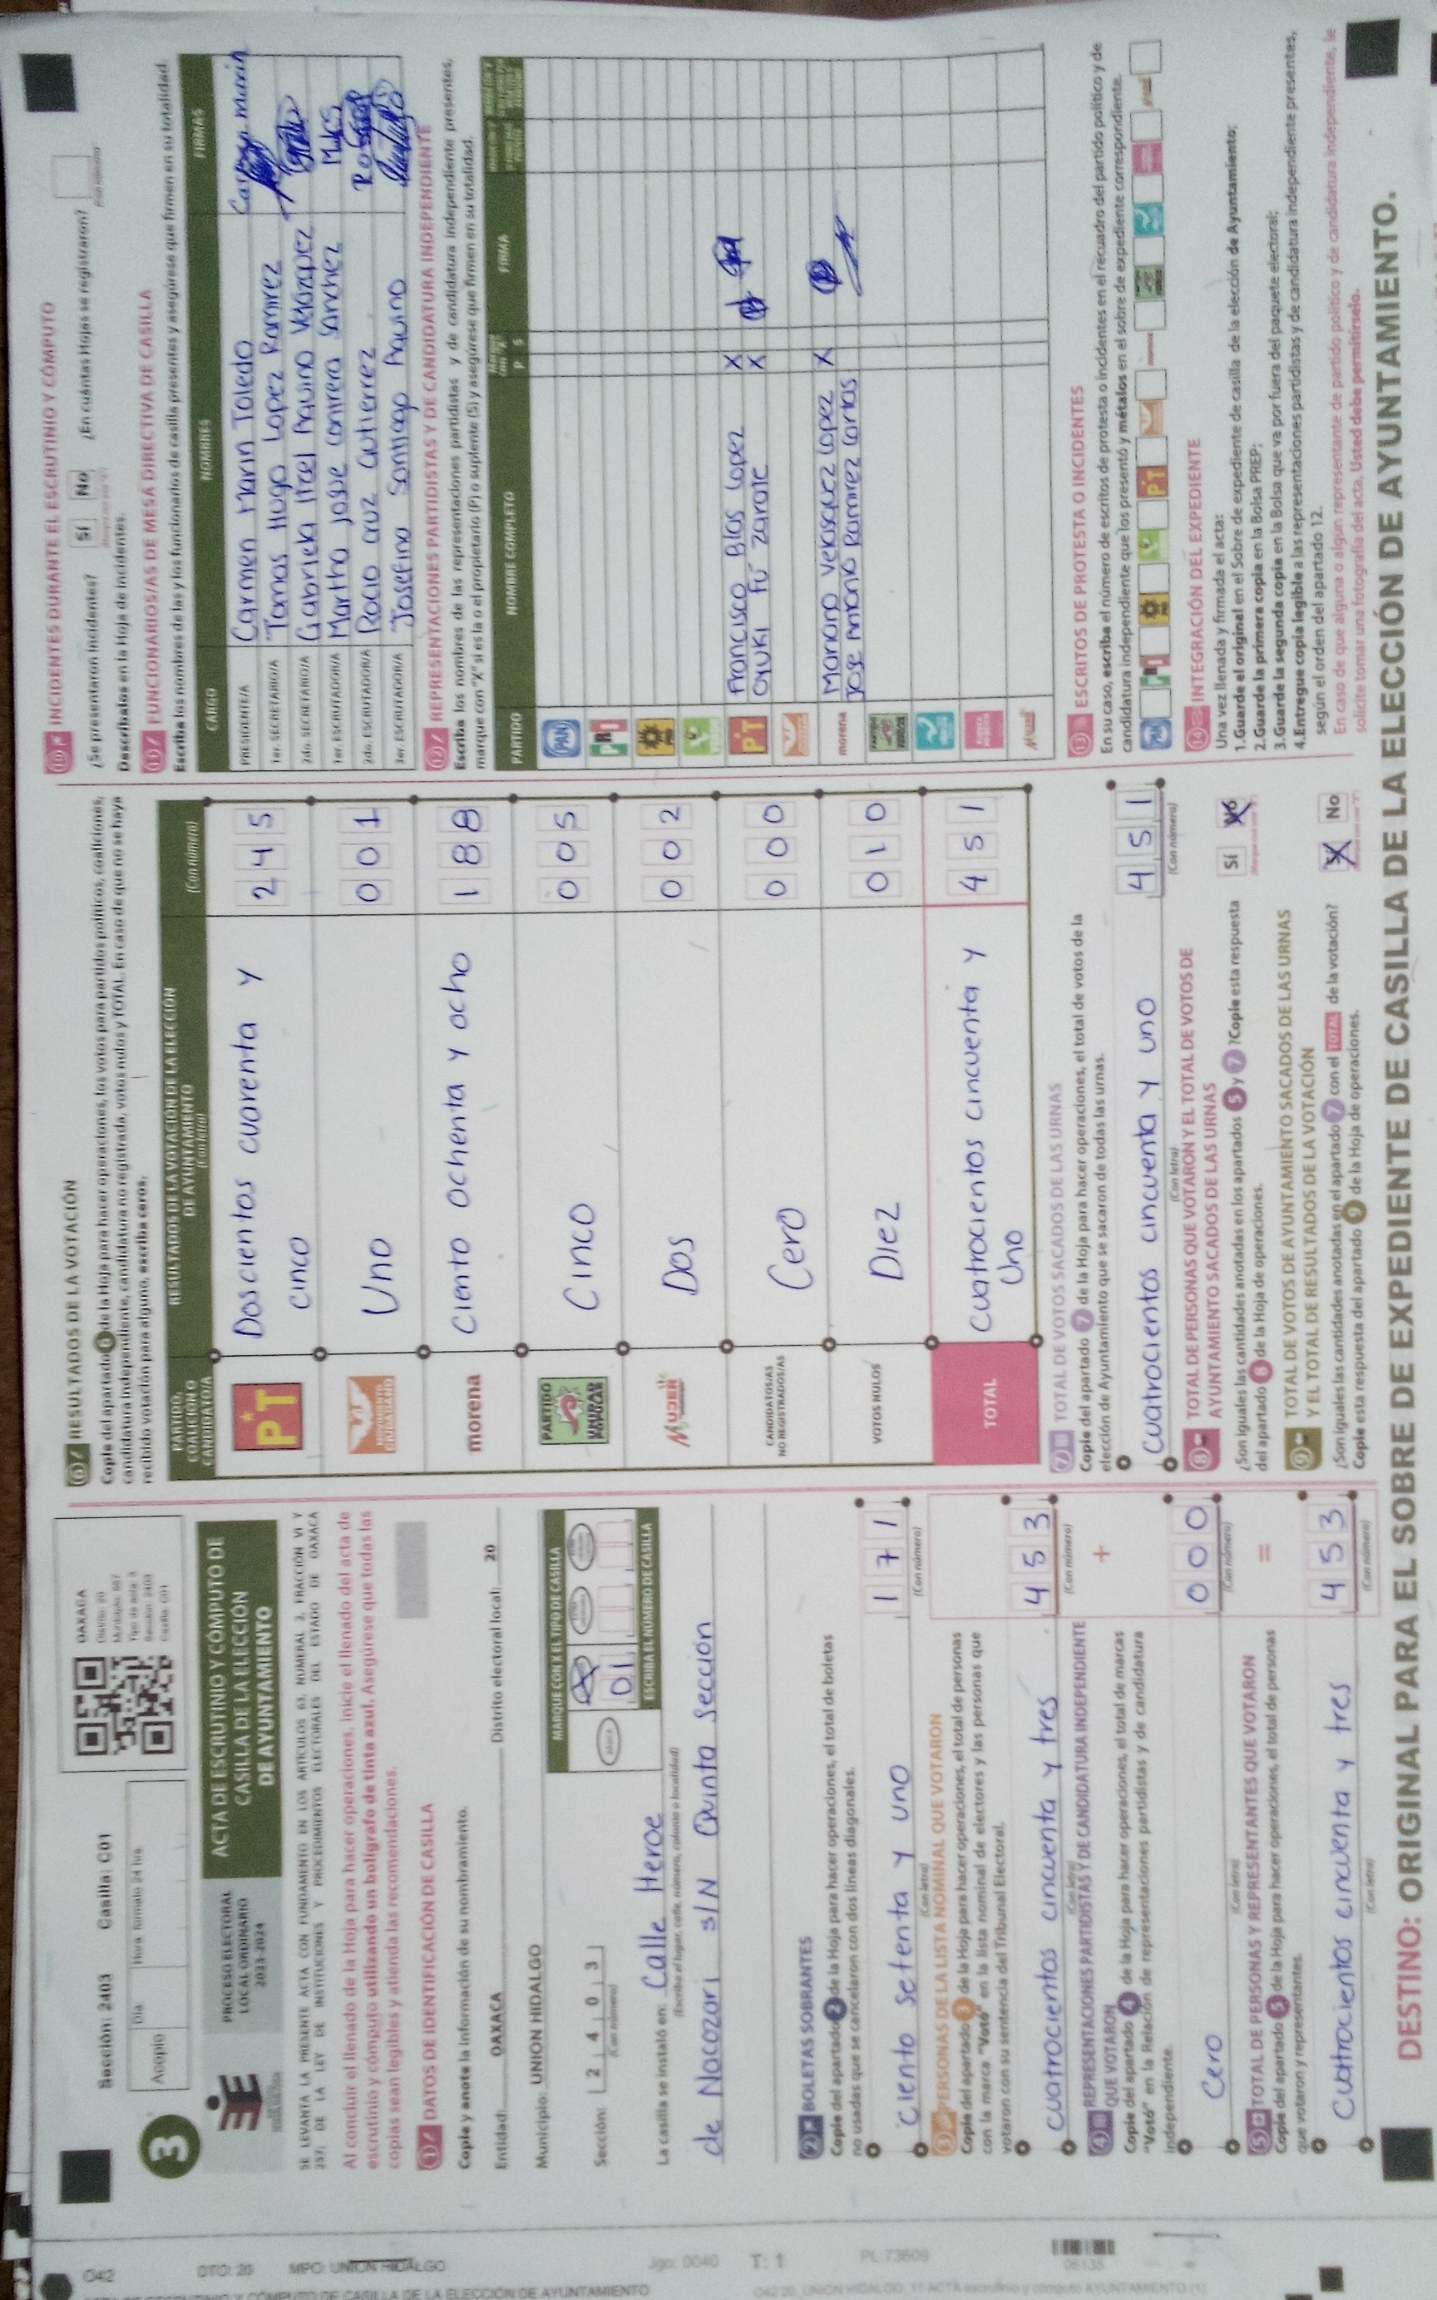 Sección: 2403 Casilla: C01
Acopio Día Hora formato 24 hrs
OAXACA
3
PROCESO ELECTORAL
LOCAL ORDINARIO
2023-2024
ACTA DE ESCRUTINIO Y CÓMPUTO DE
CASILLA DE LA ELECCIÓN
DE AYUNTAMIENTO
SE LEVANTA LA PRESENTE ACTA CON FUNDAMENTO EN LOS ARTÍCULOS 63, NUMERAL 3, FRACCIÓN VI Y
257, DE LA LEY DE INSTITUCIONES Y PROCEDIMIENTOS ELECTORALES DEL ESTADO DE OAXACA
Al concluir el llenado de la Hoja para hacer operaciones, inicie el llenado del acta de
escrutinio y cómputo utilizando un bolígrafo de tinta azul. Asegúrese que todas las
copias sean legibles y atienda las recomendaciones.
1 DATOS DE IDENTIFICACIÓN DE CASILLA
Copie y anote la información de su nombramiento.
Entidad: OAXACA Distrito electoral local: 20
Municipio: UNION HIDALGO
MARQUE CON X EL TIPO DE CASILLA
Sección: 2 4 0 3
(Con número)
01
ESCRIBA EL NÚMERO DE CASILLA
La casilla se instaló en: Calle Heroe
(Escriba el lugar, calle, número, colonia o localidad)
de Nacozari s/N Quinta Sección
2 BOLETAS SOBRANTES
Copie del apartado 2 de la Hoja para hacer operaciones, el total de boletas
no usadas que se cancelaron con dos líneas diagonales.
Ciento setenta y uno 1 7 1
(Con letra) (Con número)
3 PERSONAS DE LA LISTA NOMINAL QUE VOTARON
Copie del apartado 3 de la Hoja para hacer operaciones, el total de personas
con la marca "Votó" en la lista nominal de electores y las personas que
votaron con su sentencia del Tribunal Electoral.
Cuatrocientos cincuenta y tres 4 5 3
(Con letra) (Con número)
4 REPRESENTACIONES PARTIDISTAS Y DE CANDIDATURA INDEPENDIENTE
QUE VOTARON
Copie del apartado 4 de la Hoja para hacer operaciones, el total de marcas
"Votó" en la Relación de representaciones partidistas y de candidatura
independiente.
+
Cero 0 0 0
(Con letra) (Con número)
5 TOTAL DE PERSONAS Y REPRESENTANTES QUE VOTARON
Copie del apartado 5 de la Hoja para hacer operaciones, el total de personas
que votaron y representantes.
=
Cuatrocientos cincuenta y tres 4 5 3
(Con letra) (Con número)
6 RESULTADOS DE LA VOTACIÓN
Copie del apartado 6 de la Hoja para hacer operaciones, los votos para partidos políticos, coaliciones,
candidatura independiente, candidatura no registrada, votos nulos y TOTAL. En caso de que no se haya
recibido votación para alguno, escriba ceros.
PARTIDO,
COALICIÓN O
CANDIDATO/A
RESULTADOS DE LA VOTACIÓN DE LA ELECCIÓN
DE AYUNTAMIENTO
(Con letra) (Con número)
PT Doscientos cuarenta y cinco 2 4 5
MOVIMIENTO CIUDADANO Uno 0 0 1
morena Ciento ochenta y ocho 1 8 8
PARTIDO UNIDAD POPULAR Cinco 0 0 5
MUJER Dos 0 0 2
CANDIDATOS/AS
NO REGISTRADOS/AS Cero 0 0 0
VOTOS NULOS Diez 0 1 0
TOTAL Cuatrocientos cincuenta y Uno 4 5 1
7 TOTAL DE VOTOS SACADOS DE LAS URNAS
Copie del apartado 7 de la Hoja para hacer operaciones, el total de votos de la
elección de Ayuntamiento que se sacaron de todas las urnas.
Cuatrocientos cincuenta y uno 4 5 1
(Con letra) (Con número)
8 TOTAL DE PERSONAS QUE VOTARON Y EL TOTAL DE VOTOS DE
AYUNTAMIENTO SACADOS DE LAS URNAS
¿Son iguales las cantidades anotadas en los apartados 5 y 7? Copie esta respuesta
del apartado 8 de la Hoja de operaciones.
Sí No
9 TOTAL DE VOTOS DE AYUNTAMIENTO SACADOS DE LAS URNAS
Y EL TOTAL DE RESULTADOS DE LA VOTACIÓN
¿Son iguales las cantidades anotadas en el apartado 7 con el TOTAL de la votación?
Copie esta respuesta del apartado 9 de la Hoja de operaciones.
No
10 INCIDENTES DURANTE EL ESCRUTINIO Y CÓMPUTO
¿Se presentaron incidentes? Sí No ¿En cuántas Hojas se registraron?
Descríbalos en la Hoja de Incidentes.
11 FUNCIONARIOS/AS DE MESA DIRECTIVA DE CASILLA
Escriba los nombres de las y los funcionarios de casilla presentes y asegúrese que firmen en su totalidad.
CARGO NOMBRES FIRMAS
PRESIDENTE/A Carmen Marin Toledo
1er. SECRETARIO/A Tomas Hugo Lopez Ramirez
2do. SECRETARIO/A Gabriela Itcel Aquino Velazquez
1er. ESCRUTADOR/A Martha Josue Contrera Sanchez
2do. ESCRUTADOR/A Rocio Cruz Gutierrez
3er. ESCRUTADOR/A Josefina Santiago Aquino
12 REPRESENTACIONES PARTIDISTAS Y DE CANDIDATURA INDEPENDIENTE
Escriba los nombres de las representaciones partidistas y de candidatura independiente presentes,
marque con "X" si es la o el propietario (P) o suplente (S) y asegúrese que firmen en su totalidad.
PARTIDO NOMBRE COMPLETO P S FIRMA
PAN
PRI
PT Francisco Blas Lopez X
Oyuki Fu Zarate X
morena Mariano Velasquez Lopez X
Jose Antonio Ramirez Carlos
MUJER
13 ESCRITOS DE PROTESTA O INCIDENTES
En su caso, escriba el número de escritos de protesta o incidentes en el recuadro del partido político y de
candidatura independiente que los presentó y métalos en el sobre de expediente correspondiente.
PAN PRI PT
14 INTEGRACIÓN DEL EXPEDIENTE
Una vez llenada y firmada el acta:
1.Guarde el original en el Sobre de expediente de casilla de la elección de Ayuntamiento;
2.Guarde la primera copia en la Bolsa PREP;
3.Guarde la segunda copia en la Bolsa que va por fuera del paquete electoral;
4.Entregue copia legible a las representaciones partidistas y de candidatura independiente presentes,
según el orden del apartado 12.
En caso de que alguna o algún representante de partido político y de candidatura independiente, le
solicite tomar una fotografía del acta, Usted debe permitírselo.
DESTINO: ORIGINAL PARA EL SOBRE DE EXPEDIENTE DE CASILLA DE LA ELECCIÓN DE AYUNTAMIENTO.
042 DTO: 20 MPO: UNION HIDALGO T: 1